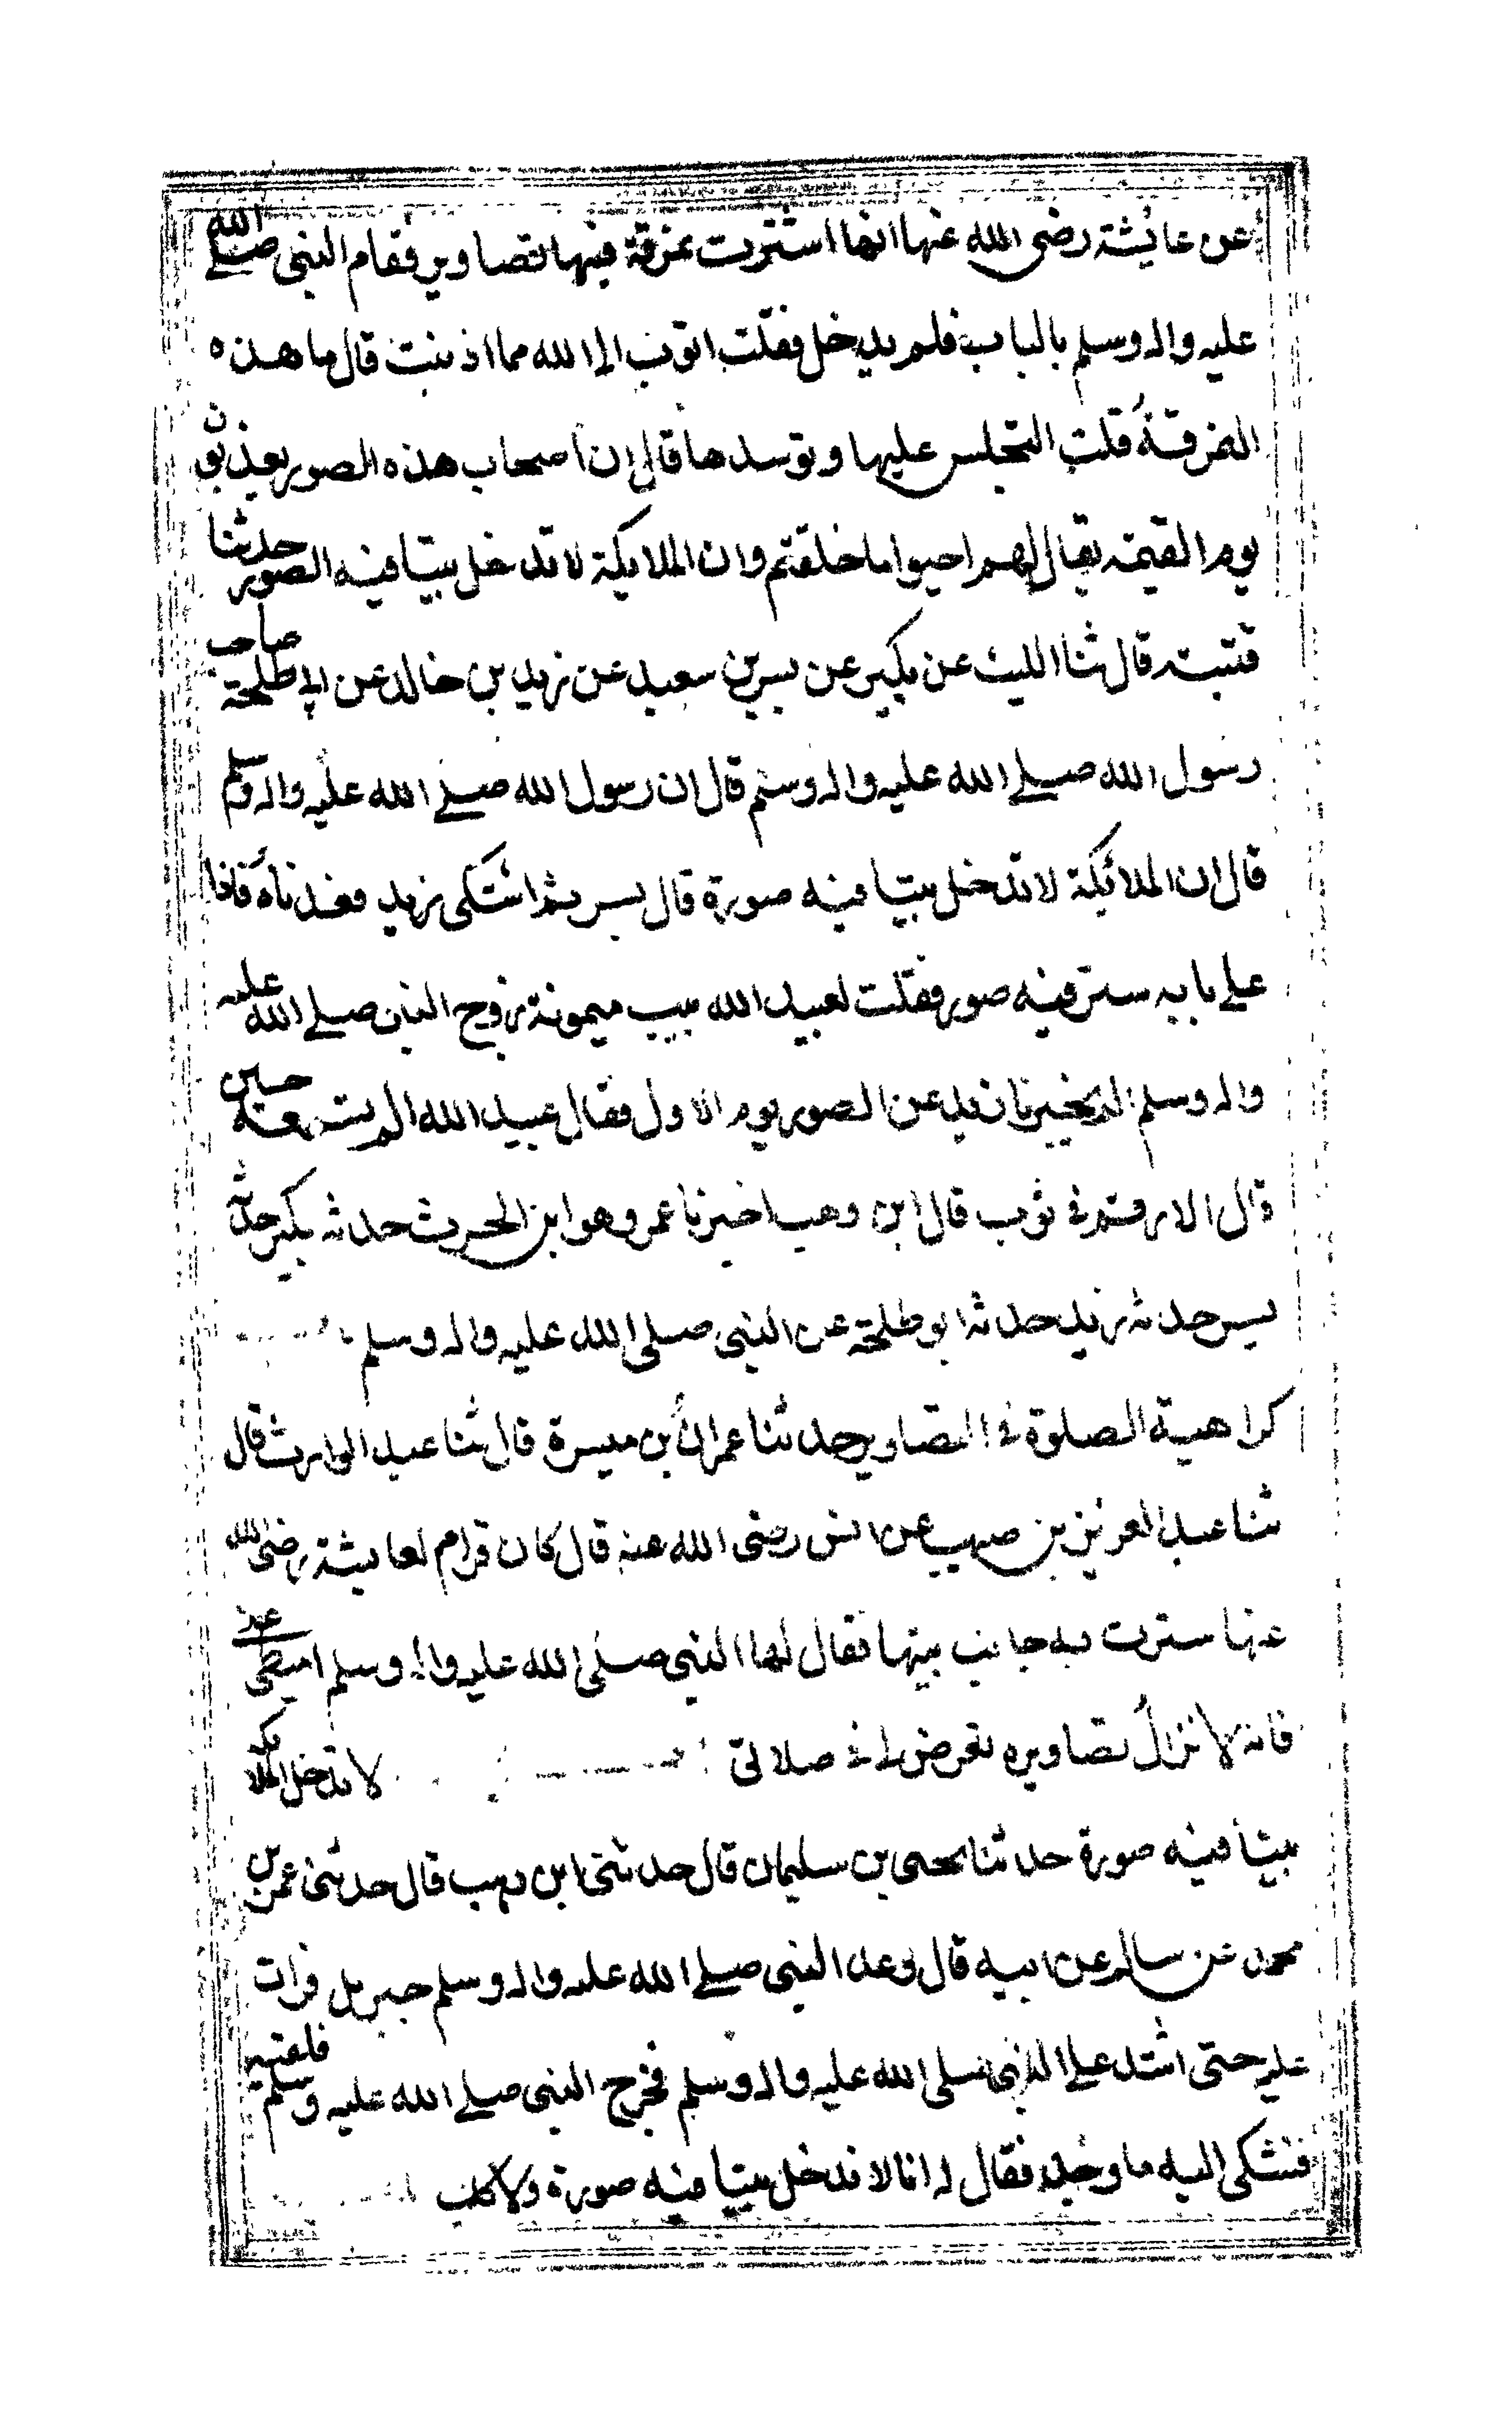 عن عايشة رضى الله عنها انها اشترت نمرقة فيها تصاوير فقام النبى صلے الله
عليه واله وسلم بالباب فلم يدخل فقلت اتوب الى الله مما اذنبت قال ما هذه
النمرقة قلت لتجلس عليها وتوسدها قال ان اصحاب هذه الصور يعذبون
يوم القيمة يقال لهم احيوا ما خلقتم وان الملايكة لا تدخل بيتا فيه الصور حدثنا
قتيبة قال ثنا الليث عن بكير عن بسر بن سعيد عن زيد بن خالد عن ابى طلحة صاحب
رسول الله صلے الله عليه واله وسلم قال ان رسول الله صلے الله عليه واله وسلم
قال ان الملائكة لا تدخل بيتا فيه صورة قال بسر ثم اشتكى زيد فعدناه فاذا
على بابه ستر فيه صور فقلت لعبيد الله ربيب ميمونة زوج النبى صلے الله عليه
واله وسلم الم يخبرنا زيد عن الصور يوم الاول فقال عبيد الله الم تسمعه حين
قال الا رقم فى ثوب قال ابن وهب اخبرنا عمرو هو ابن الحرث حدثه بكير حدثه
بسر حدثه زيد حدثه ابو طلحة عن النبى صلى الله عليه واله وسلم
كراهية الصلوة فى التصاوير حدثنا عمران بن ميسرة قال ثنا عبد الوارث قال
ثنا عبد العزيز بن صهيب عن انس رضى الله عنه قال كان قرام لعايشة رضى الله
عنها سترت به جانب بيتها فقال لها النبى صلى الله عليه واله وسلم اميطى عنى
فانه لا تزال تصاويره تعرض لى فى صلاتى لا تدخل الملائكة
بيتا فيه صورة حدثنا يحيى بن سليمان قال حدثنى ابن وهب قال حدثنى عمر بن
محمد عن سالم عن ابيه قال وعد النبى صلے الله عليه واله وسلم جبريل فراث
عليه حتى اشتد على النبى صلى الله عليه واله وسلم فخرج النبى صلے الله عليه وسلم فلقيه
فشكى اليه ما وجد فقال له انا لا ندخل بيتا فيه صورة ولا كلب